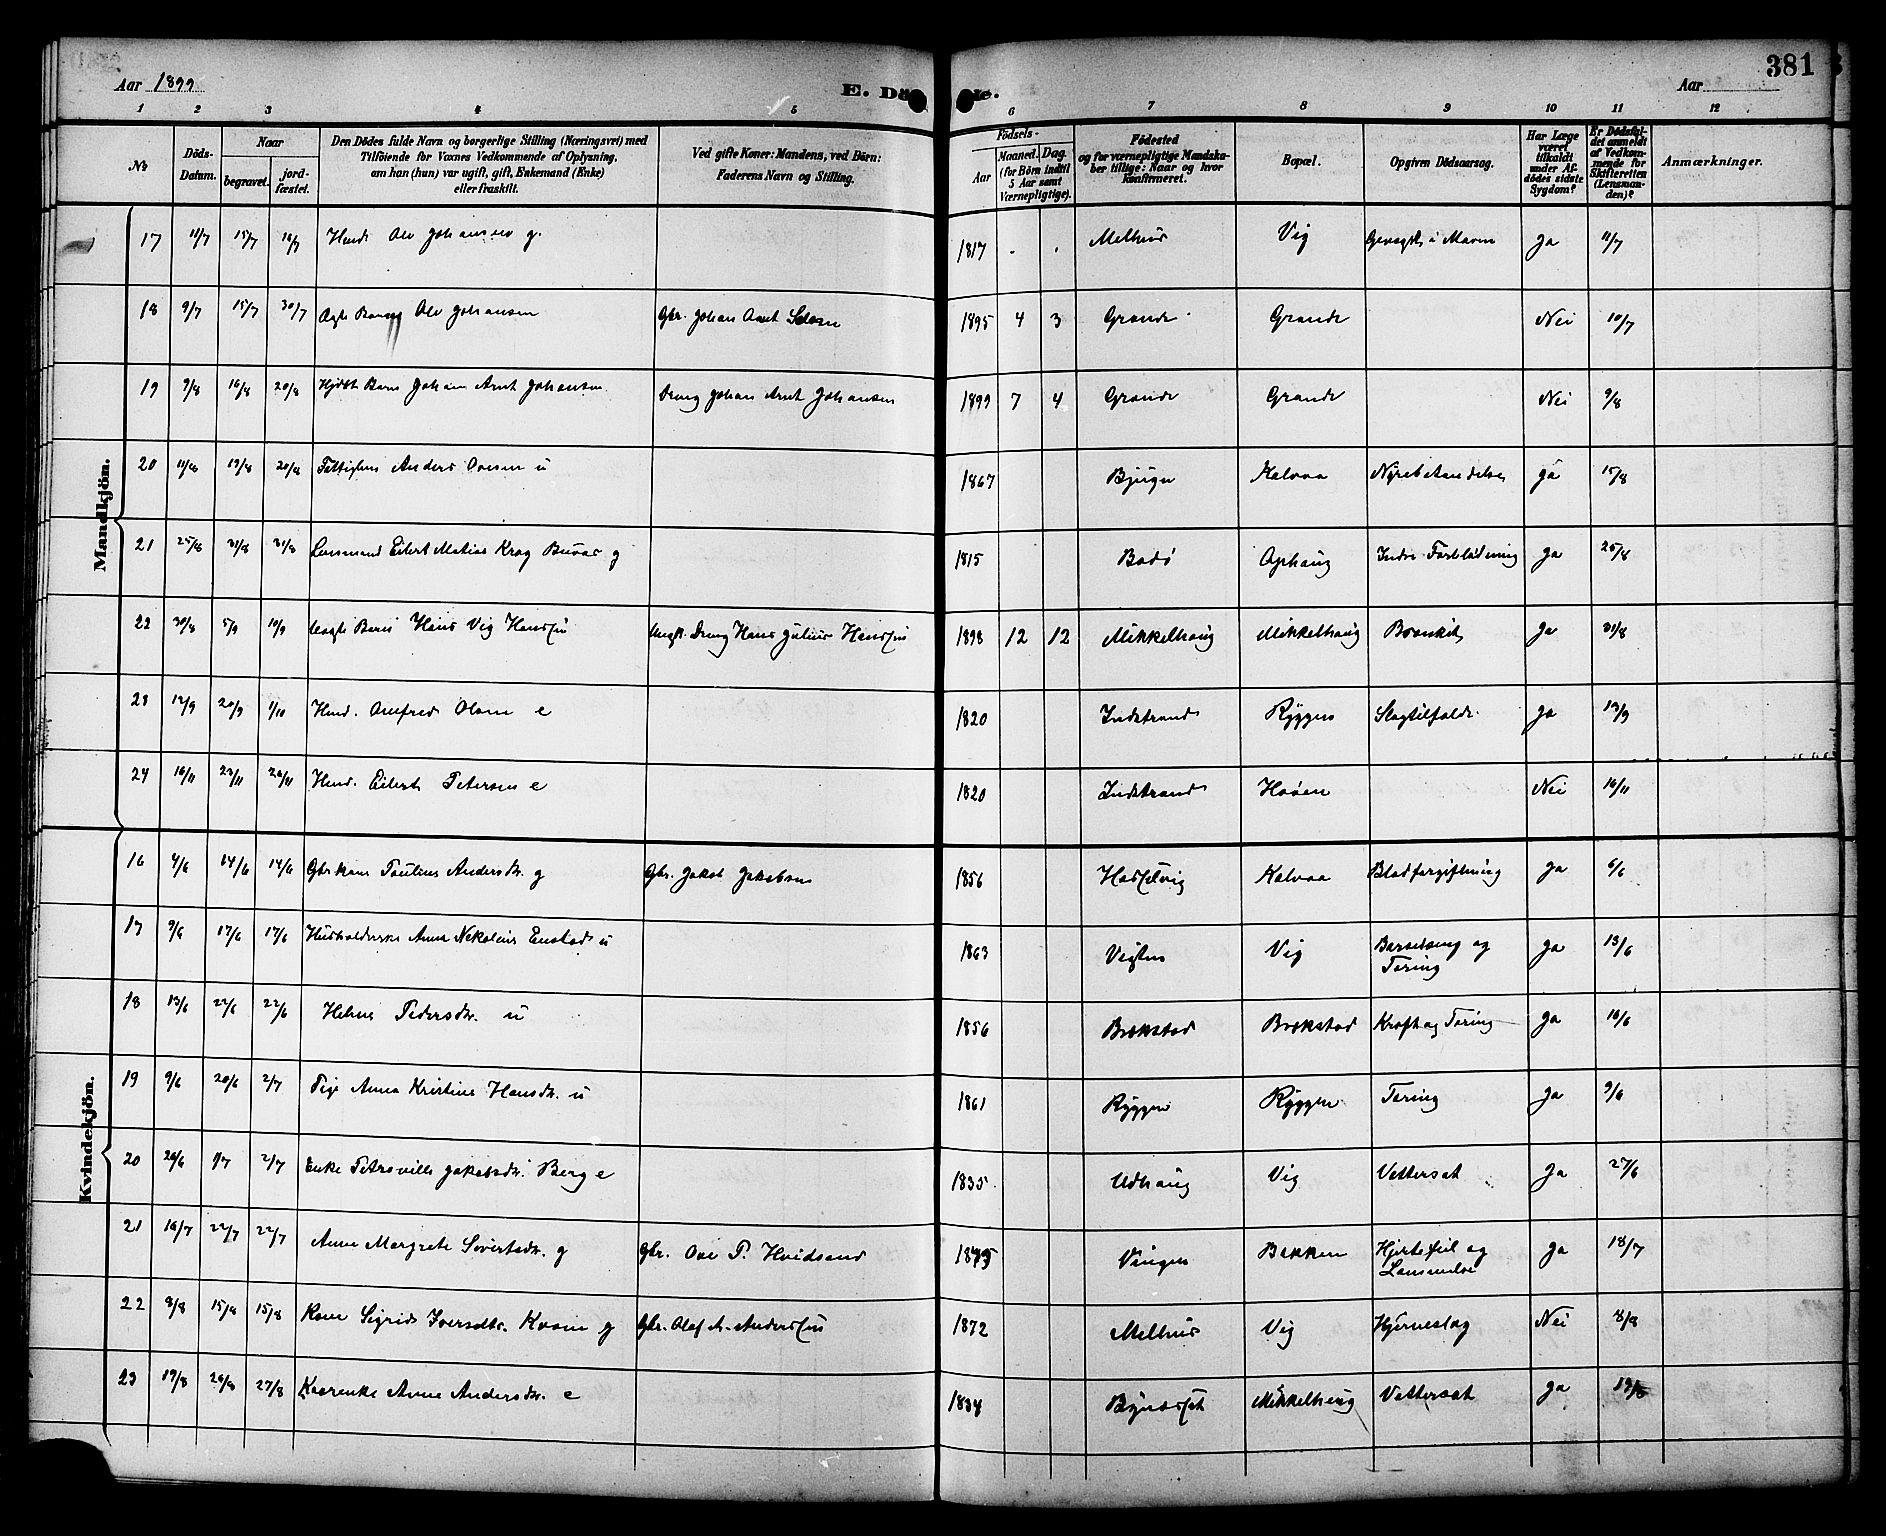 381
Aar 1899
E. Döde.
Aar
1 2 3 4 5 6 7 8 9 10 11 12
№
Döds-Datum.
Naar
begravet.
jord-fæstet.
Den Dödes fulde Navn og borgerlige Stilling (Næringsvei) med
Tilföiende for Voxnes Vedkommende af Oplysning,
om han (hun) var ugift, gift, Enkemand (Enke)
eller fraskilt.
Ved gifte Koner: Mandens, ved Börn:
Faderens Navn og Stilling.
Födsels-
Aar
Maaned. Dag.
(for Börn indtil
5 Aar samt
Værnepligtige).
Födested
og for værnepligtige Mandska-
ber tillige: Naar og hvor
konfirmeret.
Bopæl.
Opgiven Dödsaarsag.
Har Læge
været
tilkaldt
under Af-
dödes sidste
Sygdom?
Er Dödsfal-
det anmeldt
af Vedkom-
mende for
Skifteretten
(Lensman-
den)?
Anmærkninger.
Mandkjön.
17 11/7 15/7 16/7 Husm. Ole Johansen g. 1817 . . Melhus Vig i Maven Ja 11/7
18 9/7 15/7 30/7 Ægte Barn Ole Johansen Gbr. Johan Arnt 1895 4 3 Grande Grande Nei 10/7
19 9/8 16/8 20/8 Barn Johan Arnt Johansen Dreng Johan Arnt Johansen 1899 7 4 Grande Grande Nei 9/8
20 11/8 19/8 20/8 Fattiglem Anders Ovesen u 1867 Bjugn Kalvaa Nyrebetændelse ja 15/8
21 25/8 31/8 31/8 Lensmand Eilert Matias Krog Buvas g 1815 Bodö Ophaug Indre Forblödning ja 25/8
22 30/8 5/9 10/9 Uægte Barn Hans Vig Hanssen Ungk. Dreng Hans Julius Hanssen 1898 12 12 Mikkelhaug Mikkelhaug Bronkit Ja 31/8
23 12/9 20/9 1/10 Husm. Olsen e 1820 Indstrand Ryggen Slagtilfælde ja 13/9
24 16/11 23/11 26/11 Husm. Eilert Petersen e 1820 Indstrand Hoøen Nei 16/11
Kvindekjön.
16 4/6 14/6 14/6 Gbrkone Pauline Andersdtr. g Gbr. Jakob Jakobsen 1856 Hasselvig Kalvaa Blodforgiftning Ja 6/6
17 9/6 17/6 17/6 Husholderske Anna Nikoline Enstad u 1863 Vigten Vig Barselseng og
Tæring Ja 13/6
18 13/6 22/6 22/6 Helene Pedersdtr. u 1856 Brækstad Brækstad Kræft og Tæring Ja 16/6
19 9/6 20/6 2/7 Pige Anna Kristine Hansdtr. u 1861 Ryggen Ryggen Tæring Ja 9/6
20 26/6 1/7 2/7 Enke Petroville Jakobsdtr. Berg e 1835 Udhaug Vig Vattersot Ja 27/6
21 16/7 22/7 22/7 Anne Margrete Sivertsdtr. g Gbr. Ove P. Hvidsand Vingen Bakken Hjertefeil og
Lammelse Ja 18/7
22 8/8 15/8 15/8 Kone Sigrid Iversdtr. Kvam g Gbr. Olaf A. Anderssen 1872 Melhus Vig Hjerneslag Nei 8/8
23 19/8 26/8 27/8 Kaarenke Anne Andersdtr. e 1834 Bynæsset Mikkelhaug Vattersot Ja